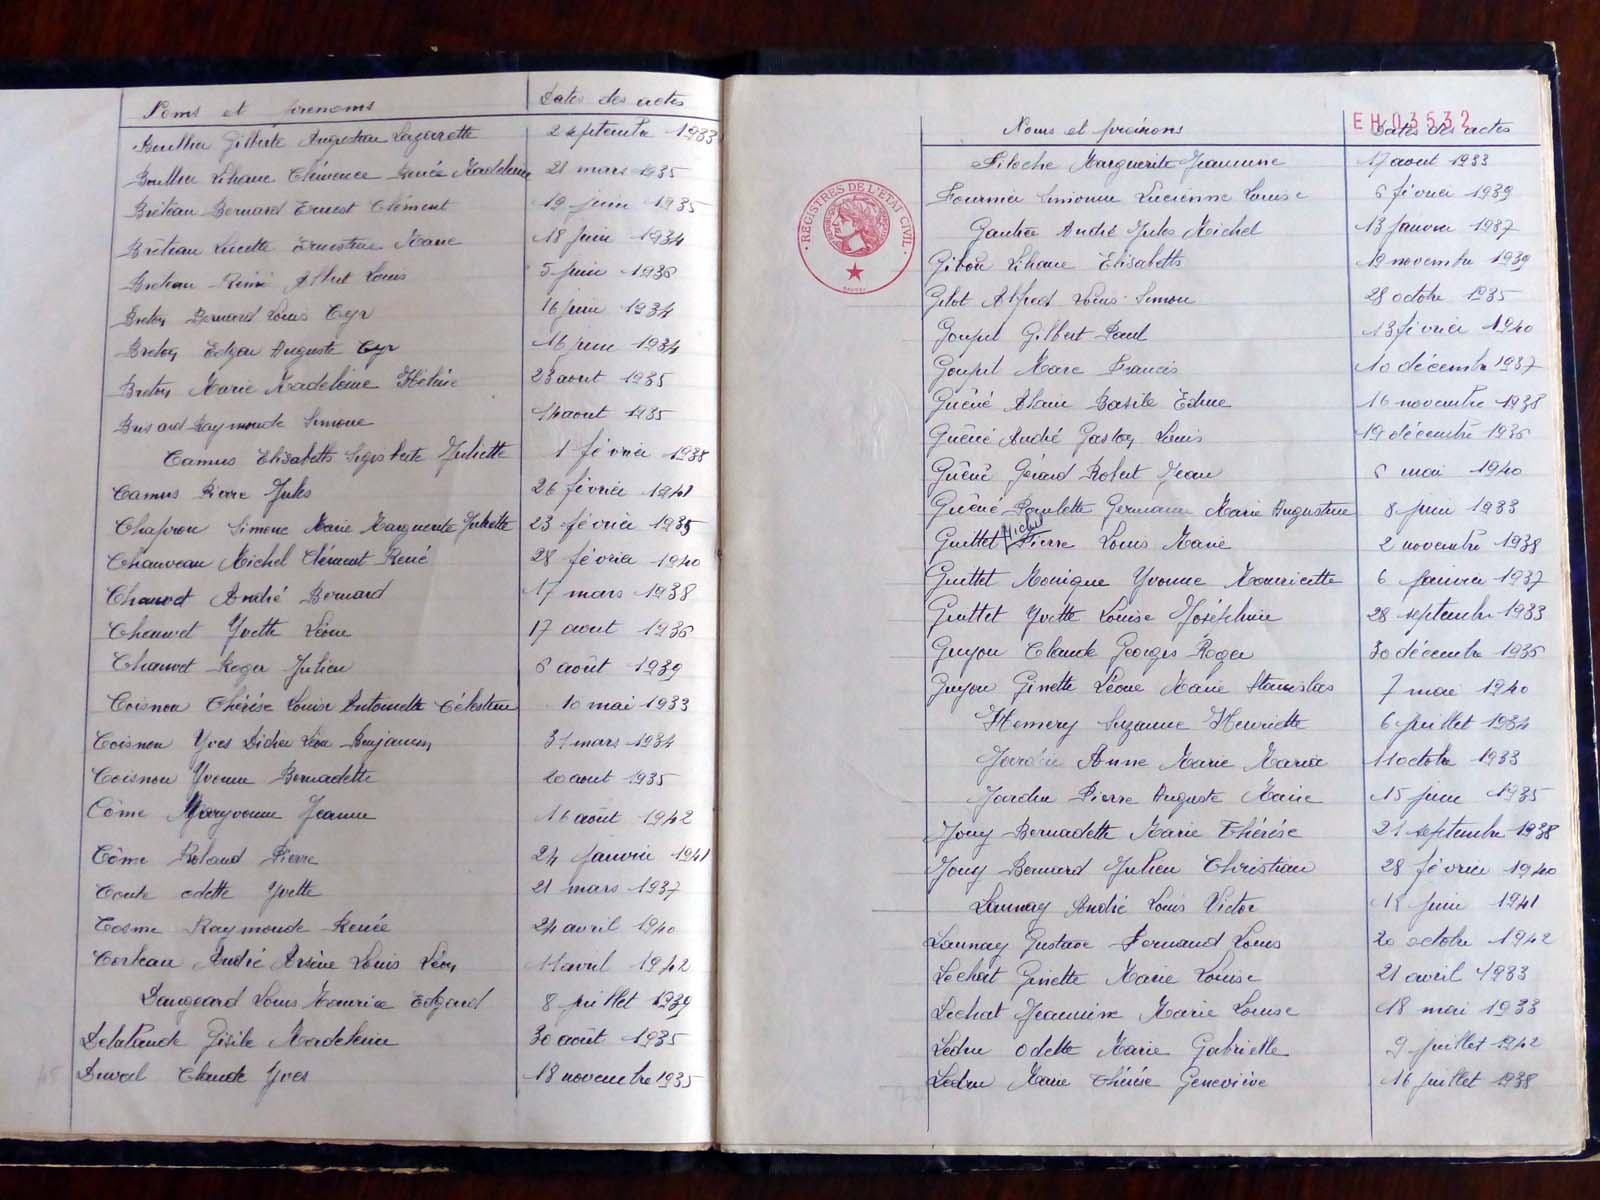 Noms et prénoms Dates des actes
Boullier Gilberte Augustine Lazarette 2 septembre 1933
Boullier Liliane Clémence Renée Madeleine 21 mars 1935
Bréteau Bernard Ernest Clément 19 juin 1935
Bréteau Lucette Ernestine Marie 18 juin 1934
Breteau Rémi Albert Louis 5 juin 1936
Breton Bernard Louis Cyr 16 juin 1934
Breton Edgar Auguste Cyr 16 juin 1934
Breton Marie Madeleine Hélène 23 aout 1935
Brisard Raymonde Simone 14 aout 1935
Camus Elisabeth Juliette 1 février 1938
Camus Pierre Jules 26 février 1941
Chapron Simone Marie Marguerite Juliette 23 février 1935
Chauveau Michel Clément René 28 février 1940
Chauvet André Bernard 17 mars 1938
Chauvet Yvette Léone 17 aout 1936
Chauvet Roger Julien 6 août 1939
Coisnon Thérèse Louise Antoinette Célestine 10 mai 1933
Coisnon Yves Didier Léon Benjamin 31 mars 1934
Coisnon Yvonne Bernadette 20 aout 1935
Côme Maryvonne Jeanne 16 août 1942
Côme Roland Pierre 24 janvier 1941
Conte odette Yvette 21 mars 1937
Cosme Raymonde Renée 24 avril 1940
Corbeau André Arsène Louis Léon 11 avril 1942
Daugeard Louis Maurice Edgard 8 juillet 1939
Delalande Gisèle Madeleine 30 août 1935
Duval Claude Yves 18 novembre 1935
EH 03532
Noms et prénoms Dates des actes
REGISTRES DE L'ETAT CIVIL
Filoche Marguerite Jeannine 17 aout 1933
Fournier Simonne Lucienne Louise 6 février 1939
Gautier André Jules Michel 13 janvier 1937
Gibon Liliane Elisabeth 19 novembre 1939
Gilot Alfred Louis Simon 28 octobre 1935
Goupil Gilbert Paul 13 février 1940
Goupil Marc Francis 10 décembre 1937
Guéné Alain Basile Edme 16 novembre 1938
Guéné André Gaston Louis 19 décembre 1936
Guéné Gérard Robert Jean 6 mai 1940
Guéné Paulette Germaine Marie Augustine 8 juin 1933
Guittet Michel Pierre Louis Marie 2 novembre 1938
Guittet Monique Yvonne Mauricette 6 janvier 1937
Guittet Yvette Louise Joséphine 28 septembre 1933
Guyon Claude Georges Roger 30 décembre 1936
Guyon Ginette Léone Marie Stanislas 7 mai 1940
Hemery Suzanne Henriette 6 juillet 1934
Jardin Anne Marie Maria 11 octobre 1933
Jardin Pierre Auguste Marie 15 juin 1935
Jouy Bernadette Marie Thérèse 21 septembre 1938
Jouy Bernard Julien Christian 28 février 1940
Launay André Louis Victor 12 juin 1941
Launay Gustave Fernand Louis 20 octobre 1942
Lechat Ginette Marie Louise 21 avril 1933
Lechat Jeannine Marie Louise 18 mai 1933
Ledru odette Marie Gabrielle 9 juillet 1942
Ledru Marie Thérèse Geneviève 16 juillet 1938